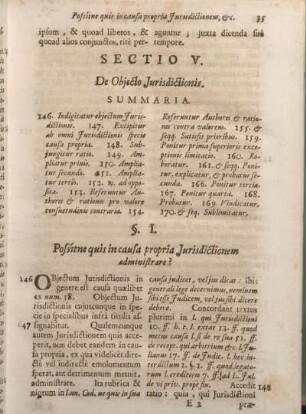 Possitne quis in causa propria Jurisdictionem, &c. 35
ipsum, & quoad liberos, & agunture; juxta dicenda suo
quoad alios conjunctos, rite per- tempore.
SECTIO V.
De Objecto Jurisdictionis.
SUMMARIA.
146. Indigitatur objectum Juris-
dictionis. 147. Excipitur
ab omni Jurisdictionis specie
causa propria. 148. Sub-
jungitur ratio. 149. Am-
pliatur primo. 150. Amplia-
tur secundo. 151. Amplia-
tur tertio. 152. n. ad oppo-
sita. 153. Referuntur Au-
thores & rationes pro valore
consuetudinis contraria. 154.
Referuntur Authores & ratio-
nes contra valorem. 155. &
seqq. Satisfit prioribus. 159.
Ponitur prima superioris excep-
tionis limitatio. 160. Ro-
boratur. 161. & seqq. Poni-
tur, explicatur, & probatur se-
cunda. 166. Ponitur tertia.
167. Ponitur quarta. 168.
Probatur. 169. Vindicatur.
170. & seq. Sublimitatur.
§. I.
Possitne quis in causa propria Jurisdictionem
administrare?
146 OBjectum Jurisdictionis in
genere est causa qualibet
ex num. 18. Objectum Juris-
dictionis cuiuscunque in spe-
cie in specialibus infra titulis assi-
47 gnabitur. Qualemcunque
autem Jurisdictionem quis acce-
perit, non debet eandem in cau-
sa propria, ex qua videlicet dire-
cte vel indirecte emolumentum
reportare, aut detrimentum me-
tuit, administrare. Ita rubrica &
nigrum in l. un. Cod. ne quis in sua
causa judicet, vel jus dicat: ibi
generali lege decernimus, neminem
sibi esse Judicem, vel jus sibi dicere
debere. Concordant textus
plurimi in l. qui Jurisdictioni
10. ff. h. t.
17. ff. de Judic. l. hoc
Accedit 148
ratio: quia, qui Jurisdictioni
E 2 præ-